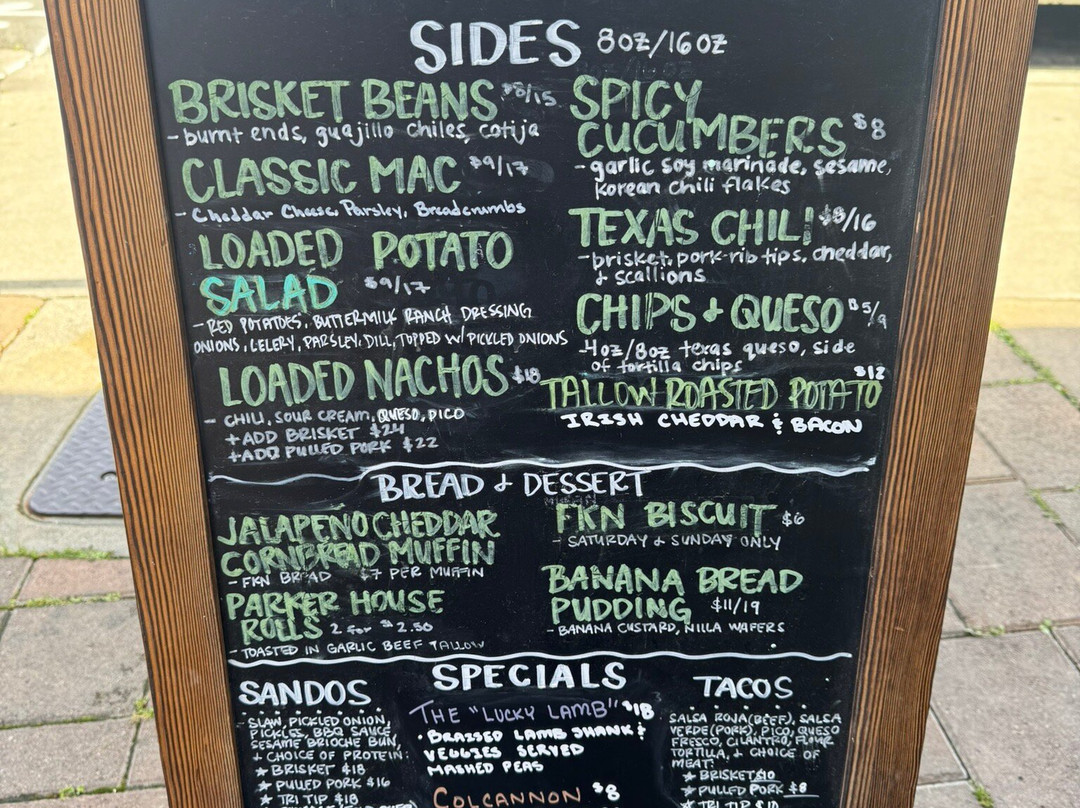 SIDES 8oz/16oz
BRISKET BEANS $8/15
- burnt ends, guajillo chiles, cotija
CLASSIC MAC $9/17
- Cheddar Cheese, Parsley, Breadcrumbs
LOADED POTATO
SALAD $9/17
- RED POTATOES, BUTTERMILK RANCH DRESSING
ONIONS, CELERY, PARSLEY, DILL, TOPPED W/ PICKLED ONIONS
LOADED NACHOS $18
- CHILI, SOUR CREAM, QUESO, PICO
+ADD BRISKET $24
+ADD PULLED PORK $22
SPICY
CUCUMBERS $8
- garlic soy marinade, sesame,
Korean chili flakes
TEXAS CHILI $8/16
- brisket, pork rib tips, cheddar,
& scallions
CHIPS & QUESO $5/9
- 4oz/8oz texas queso, side
of tortilla chips
TALLOW ROASTED POTATO $12
IRISH CHEDDAR & BACON
BREAD & DESSERT
JALAPENO CHEDDAR
CORNBREAD MUFFIN
- FKN BREAD $7 PER MUFFIN
PARKER HOUSE
ROLLS 2 for $2.50
- TOASTED IN GARLIC BEEF TALLOW
FKN BISCUIT $6
- SATURDAY & SUNDAY ONLY
BANANA BREAD
PUDDING $11/19
- BANANA CUSTARD, NILLA WAFERS
SANDOS
- SLAW, PICKLED ONION,
PICKLES, BBQ SAUCE,
SESAME BRIOCHE BUN,
+ CHOICE OF PROTEIN:
★ BRISKET $18
★ PULLED PORK $16
★ TRI TIP $18
SPECIALS
THE "LUCKY LAMB" $18
• BRAISED LAMB SHANK &
VEGGIES SERVED
MASHED PEAS
COLCANNON $8
TACOS
SALSA ROJA (BEEF), SALSA
VERDE (PORK), PICO, QUESO
FRESCO, CILANTRO, FLOUR
TORTILLA, & CHOICE OF
MEAT:
★ BRISKET $10
★ PULLED PORK $8
★ TRI TIP $10